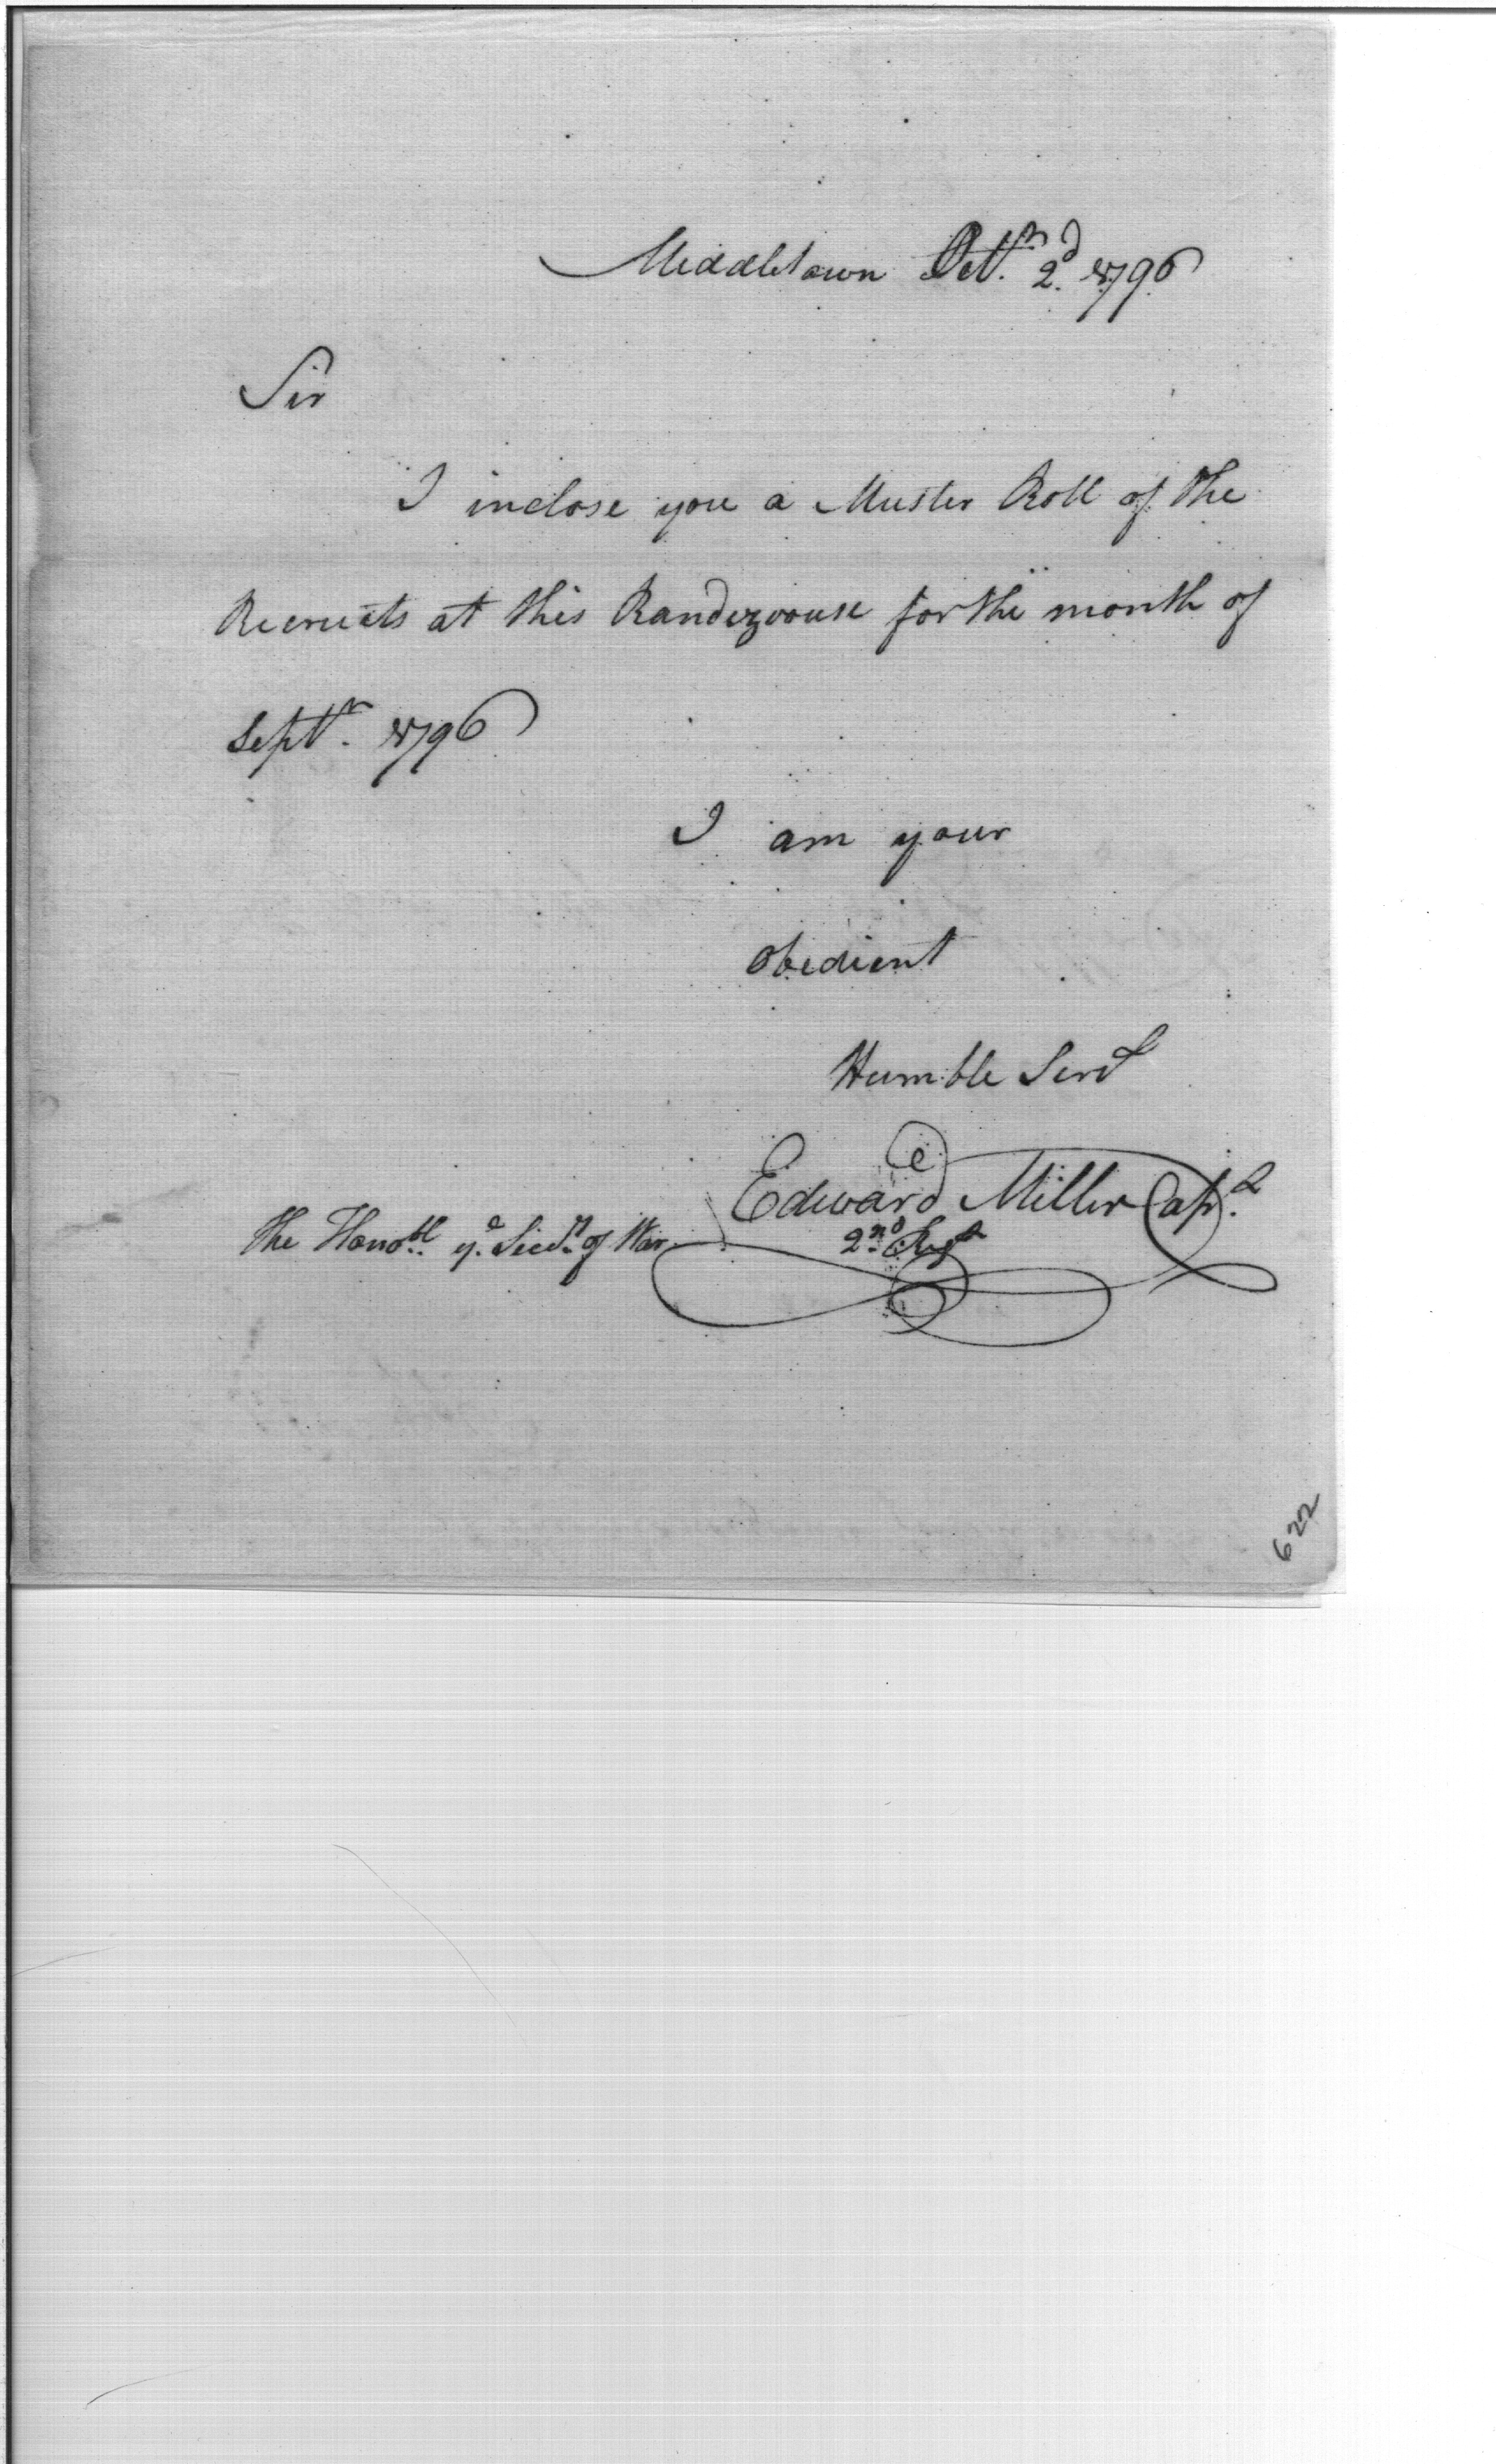 Middletown Octr. 2d. 1796
Sir
I inclose you a Muster Roll of the
Recruits at this Randezvouse for the month of
Septr. 1796
I am your
Obedient
Humble Servt
Edward Miller Capt.
2nd Regt
The Honobl. ye. Secry. of War.
622